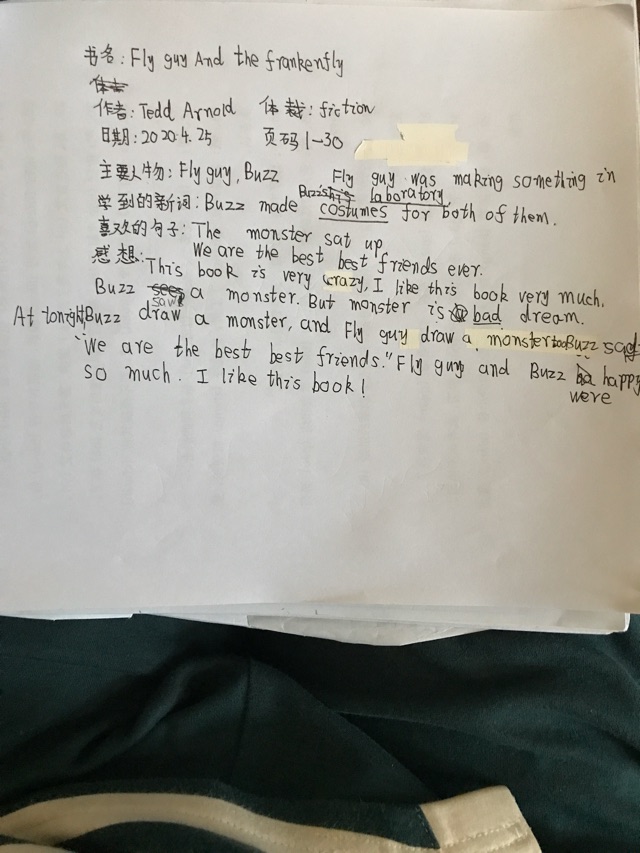 书名: Fly guy And the frankenfly
作者: Tedd Arnold 体裁: fiction
日期: 2020.4.25 页码 1-30
主要人物: Fly guy, Buzz Fly guy was making something in Buzz's laboratory.
学到的新词: Buzz made costumes for both of them.
喜欢的句子: The monster sat up
We are the best best friends ever.
感想: This book is very crazy, I like this book very much.
Buzz saw a monster. But monster is bad dream.
At tonight, Buzz draw a monster, and Fly guy draw a monster too Buzz said:
"We are the best best friends." Fly guy and Buzz were happy
so much. I like this book!